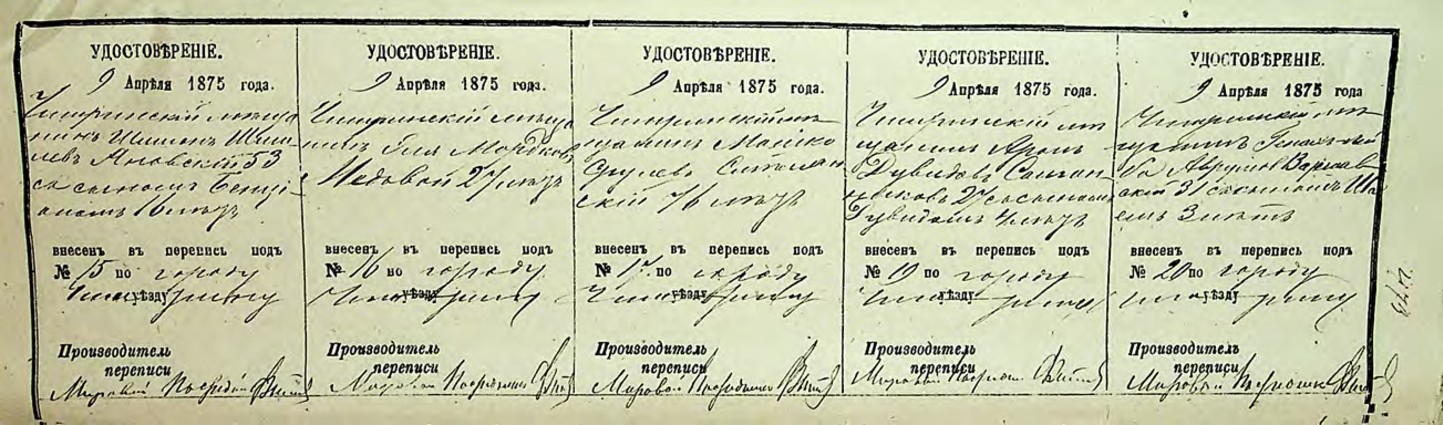 УДОСТОВѢРЕНІЕ.
9 Апрѣля 1875 года.
Чигринскій мѣща
нинъ
Яновскій 53
съ сыномъ
16 лѣтъ
внесенъ въ перепись подъ
№ 15 по городу
уѣзду Чигрину
Производитель
переписи
Мировой Посредникъ
УДОСТОВѢРЕНІЕ.
9 Апрѣля 1875 года.
Чигринскій мѣща
нинъ Эля Мордков
Медовой 27 лѣтъ
внесенъ въ перепись подъ
№ 16 по городу
уѣзду Чигрину
Производитель
переписи
Мировой Посредникъ
УДОСТОВѢРЕНІЕ.
9 Апрѣля 1875 года.
Чигринскій мѣ
щанинъ Мошко
Срулевъ
скій 76 лѣтъ
внесенъ въ перепись подъ
№ 17 по городу
уѣзду Чигрину
Производитель
переписи
Мировой Посредникъ
УДОСТОВѢРЕНІЕ.
9 Апрѣля 1875 года.
Чигринскій мѣ
щанинъ Аронъ
Дувидовъ
27 съ сыномъ
Дувидомъ 4 лѣтъ
внесенъ въ перепись подъ
№ 19 по городу
уѣзду Чигрину
Производитель
переписи
Мировой Посредникъ
УДОСТОВѢРЕНІЕ.
9 Апрѣля 1875 года
Чигринскій мѣ
щанинъ
Аврумовъ Варшав
скій 31 съ сыномъ
3 лѣтъ
внесенъ въ перепись подъ
№ 20 по городу
уѣзду Чигрину
Производитель
переписи
Мировой Посредникъ